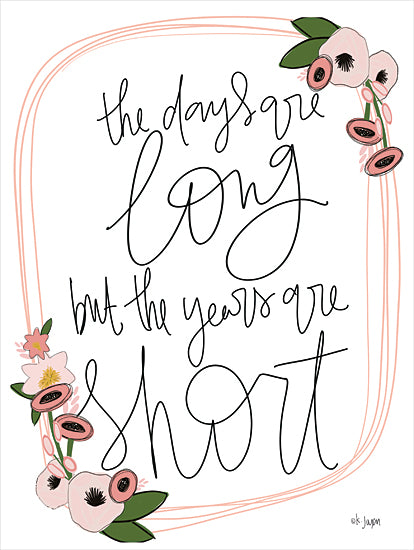 the days are
long
but the years are
short